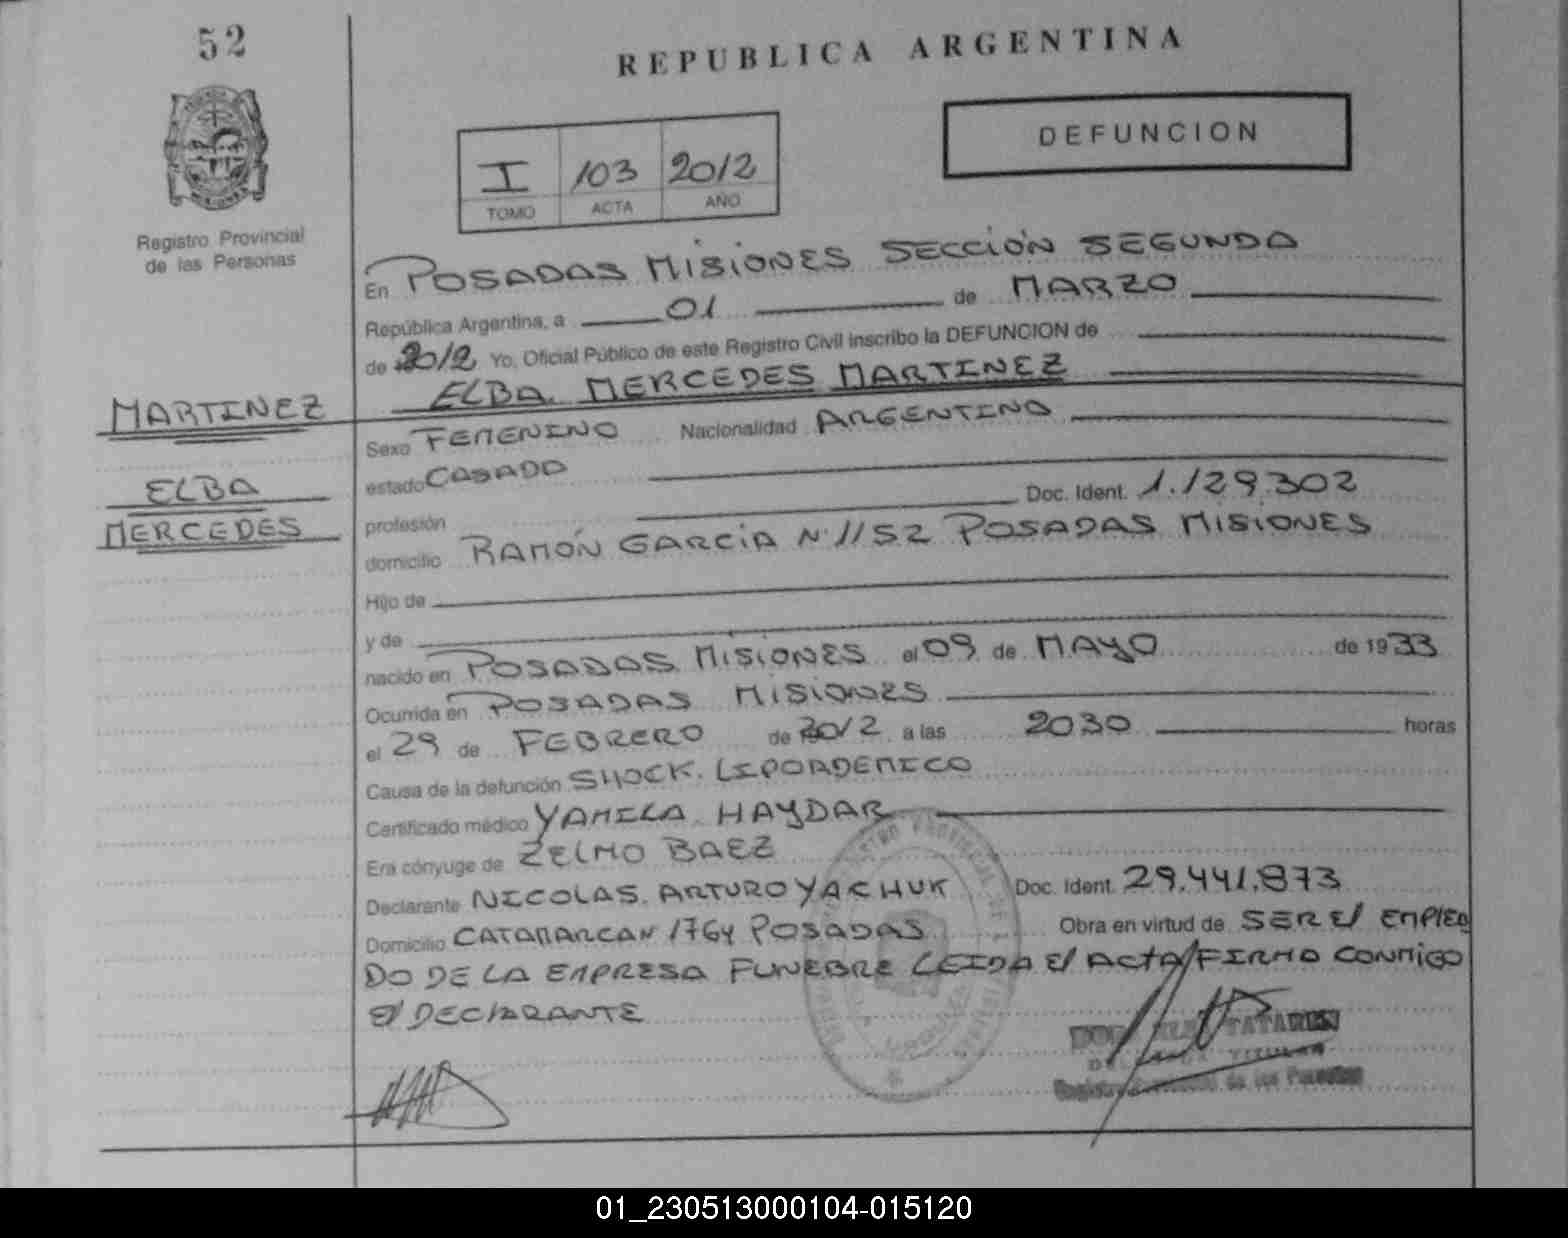 52
REPUBLICA ARGENTINA
DEFUNCION
I 103 2012
TOMO ACTA AÑO
Registro Provincial
de las Personas
En POSADAS MISIONES SECCIÓN SEGUNDA
República Argentina, a 01 de MARZO
de 2012 Yo, Oficial Público de este Registro Civil inscribo la DEFUNCION de
ELBA MERCEDES MARTINEZ
MARTINEZ
ELBA
MERCEDES
Sexo FEMENINO Nacionalidad ARGENTINO
estado CASADO
profesión Doc. Ident. 1.129.302
domicilio RAMÓN GARCIA Nº 1152 POSADAS MISIONES
Hijo de
y de
nacido en POSADAS MISIONES el 09 de MAYO de 1933
Ocurrida en POSADAS MISIONES
el 29 de FEBRERO de 2012 a las 2030 horas
Causa de la defunción SHOCK. LIPOADEMICO
Certificado médico YAMILA HAYDAR
Era cónyuge de ZELMO BAEZ
Declarante NICOLAS. ARTURO YACHUK Doc. Ident. 29.441.873
Domicilio CATAMARCAN 1764 POSADAS Obra en virtud de SER El EMPLEA
DO DE LA EMPRESA FUNEBRE LEIDA El ACTA FIRMA CONMIGO
El DEClARANTE
TITULAR
de las Personas
01_230513000104-015120